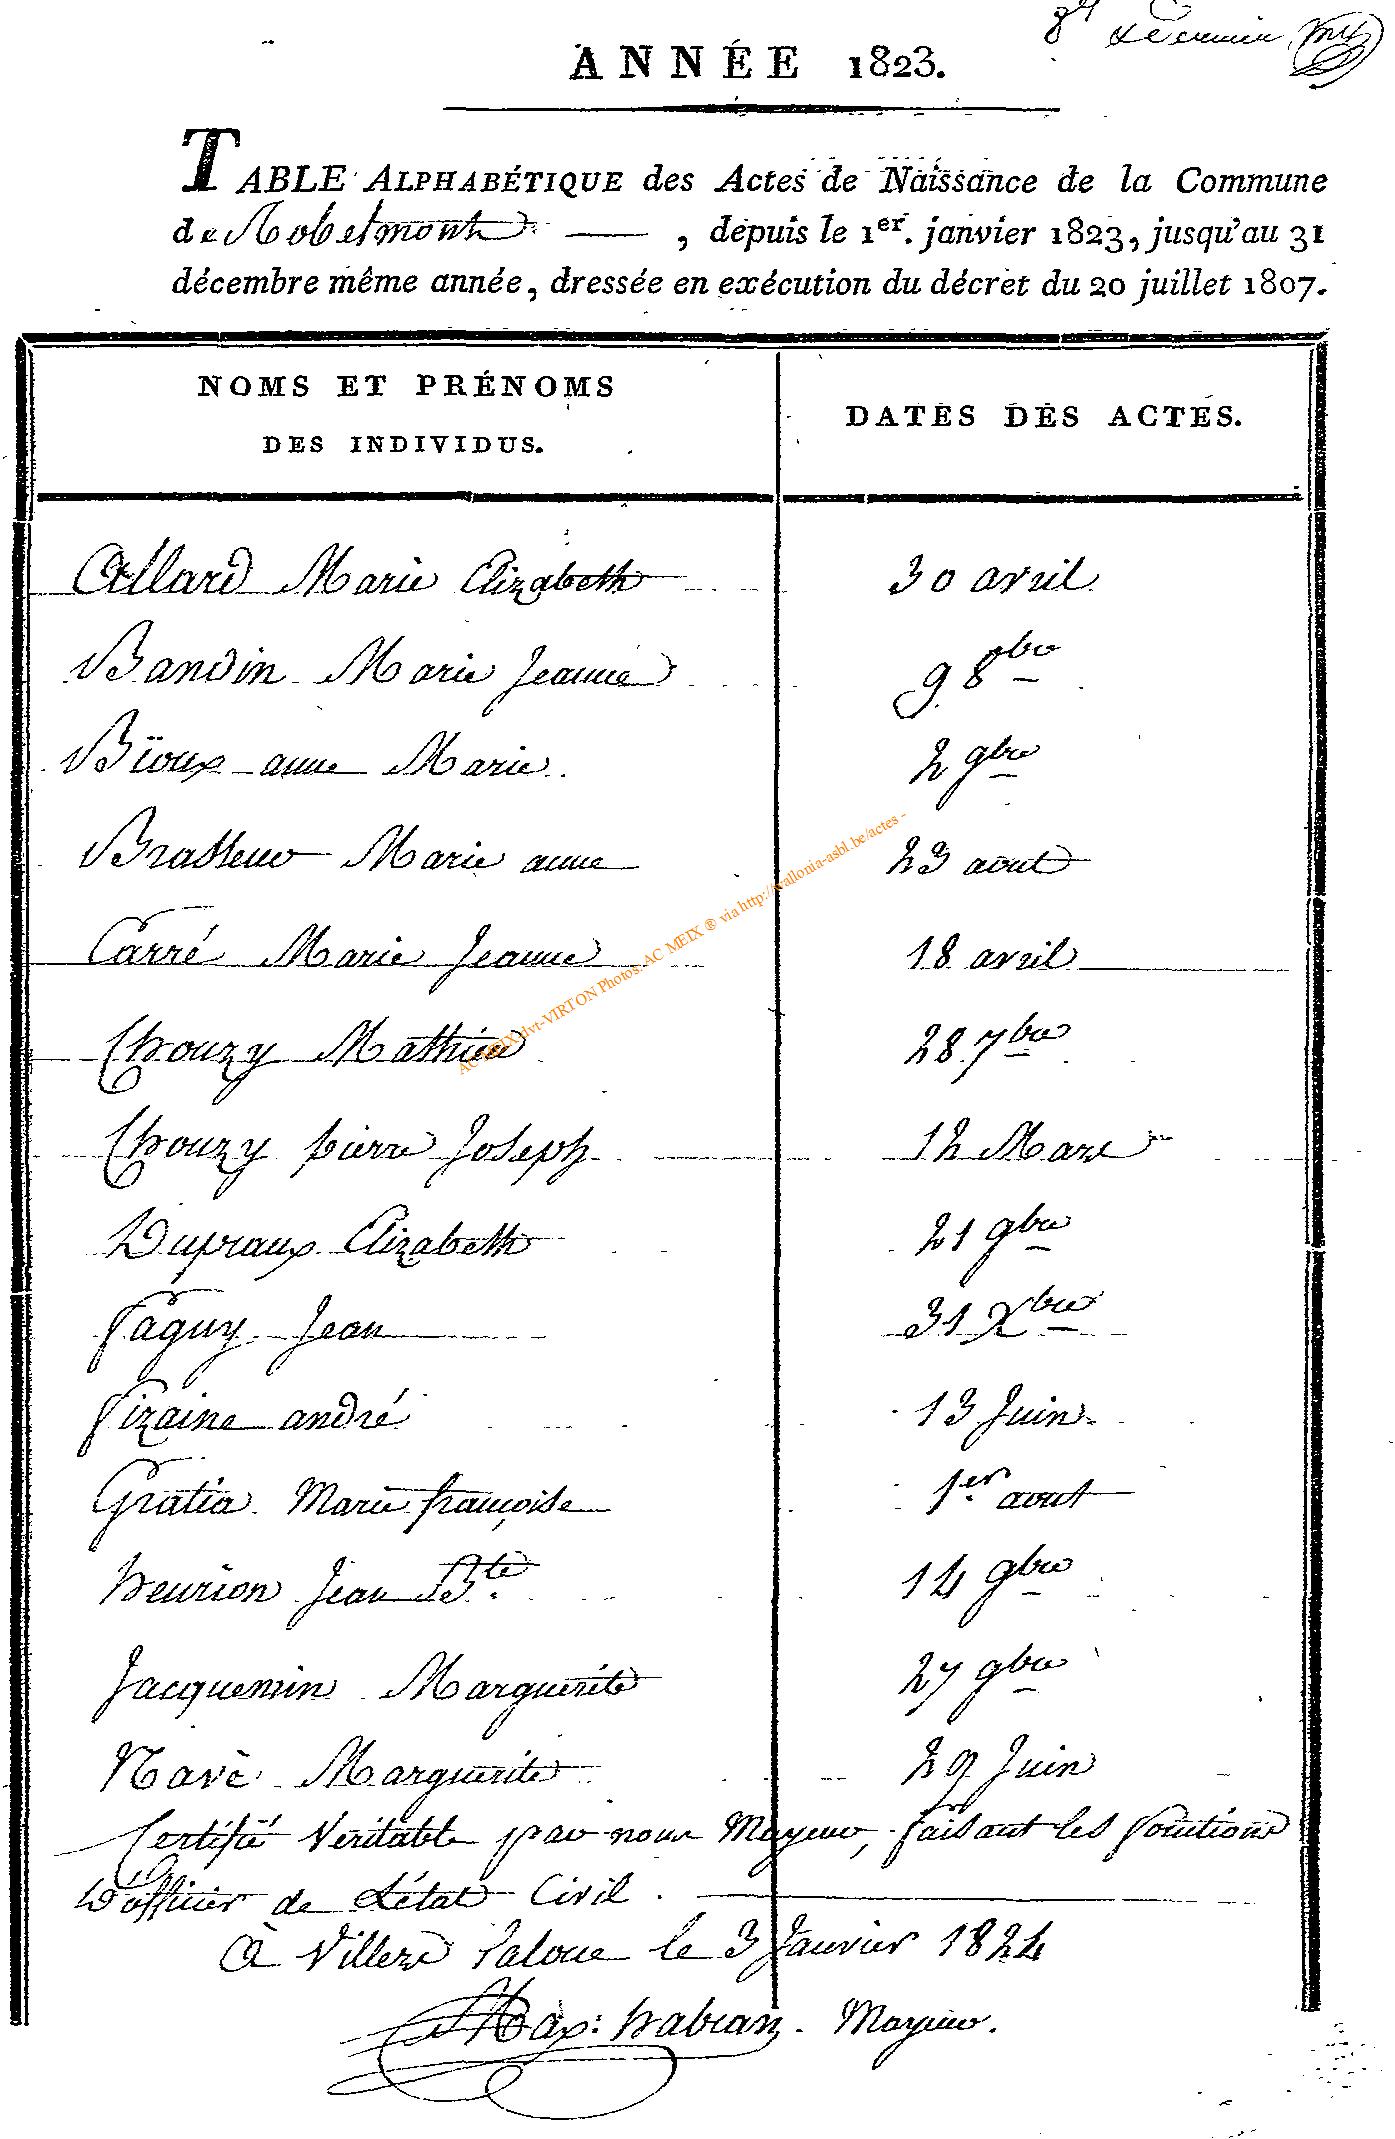 8et dernier
ANNÉE 1823.
TABLE ALPHABÉTIQUE des Actes de Naissance de la Commune
de Robelmont, depuis le 1er. janvier 1823, jusqu'au 31
décembre même année, dressée en exécution du décret du 20 juillet 1807.
NOMS ET PRÉNOMS
DES INDIVIDUS.
DATES DES ACTES.
Allard Marie Elizabeth 30 avril
Bandin Marie Jeanne 9 8bre
Bïoux anne Marie 2 9bre
Brasseur Marie anne 23 aout
Carré Marie Jeanne 18 avril
Chouzy Mathieu 28 7bre
Chouzy pierre Joseph 12 Mars
Dupraux Elizabeth 21 9bre
Faguy Jean 31 Xbre
Fizaine andré 13 Juin
Gratia Marie françoise 1er aout
henrion Jean Bte 14 9bre
Jacquemin Marguerite 27 9bre
Navè Marguerite 29 Juin
Certifié Veritable par nous Mayeur, faisant les fonctions
D'officier de L'état Civil.
à Villers Laloue le 3 Janvier 1824
Max: habran. Mayeur.
AC MEIX dvt-VIRTON Photos. AC MEIX ® via http://wallonia-asbl.be/actes -